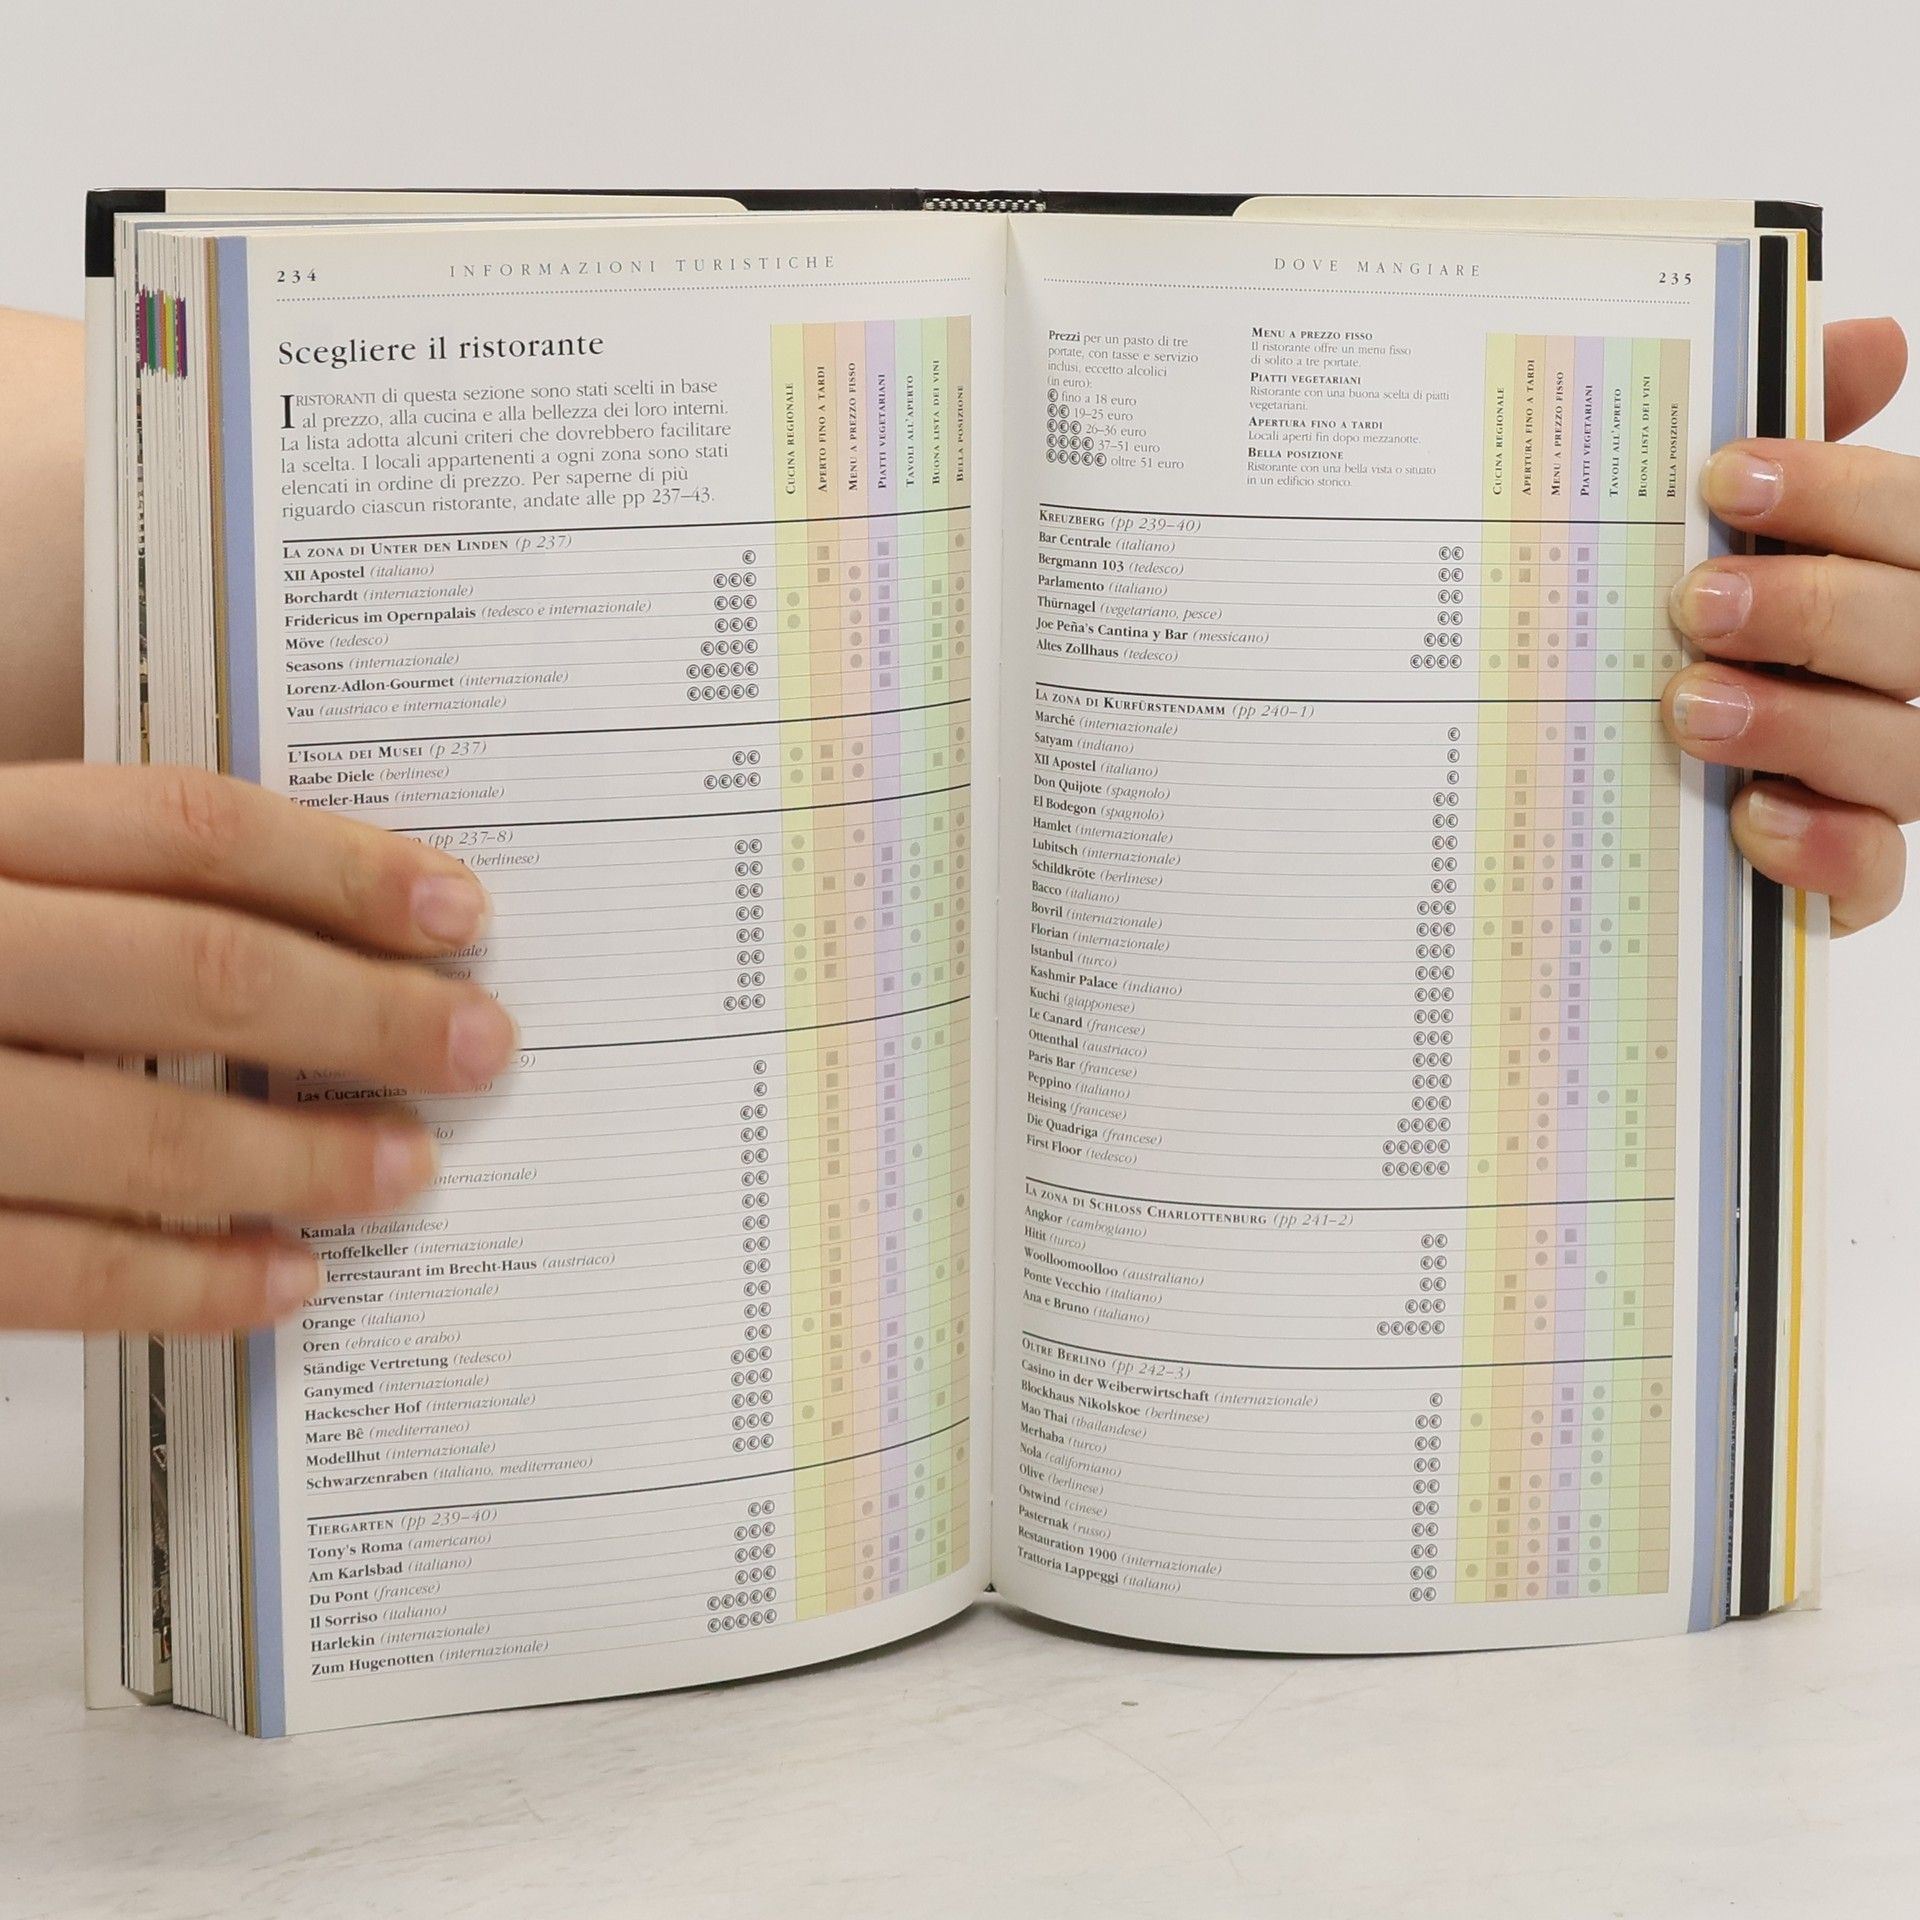 234
INFORMAZIONI TURISTICHE
Scegliere il ristorante
I RISTORANTI di questa sezione sono stati scelti in base
al prezzo, alla cucina e alla bellezza dei loro interni.
La lista adotta alcuni criteri che dovrebbero facilitare
la scelta. I locali appartenenti a ogni zona sono stati
elencati in ordine di prezzo. Per saperne di più
riguardo ciascun ristorante, andate alle pp 237–43.
CUCINA REGIONALE
APERTO FINO A TARDI
MENU A PREZZO FISSO
PIATTI VEGETARIANI
TAVOLI ALL'APERTO
BUONA LISTA DEI VINI
BELLA POSIZIONE
LA ZONA DI UNTER DEN LINDEN (p 237)
XII Apostel (italiano) €
Borchardt (internazionale) €€€
Fridericus im Opernpalais (tedesco e internazionale) €€€
Möve (tedesco) €€€
Seasons (internazionale) €€€€
Lorenz-Adlon-Gourmet (internazionale) €€€€€
Vau (austriaco e internazionale) €€€€€
L'ISOLA DEI MUSEI (p 237)
Raabe Diele (berlinese) €€
Ermeler-Haus (internazionale) €€€€
(pp 237–8)
(berlinese) €€
€€
€€
€€
€€
€€
€€
€€€
–9)
Las Cucarachas €
€
€€
€€
(internazionale) €€
€€
Kamala (thailandese) €€
Kartoffelkeller (internazionale) €€
lerrestaurant im Brecht-Haus (austriaco) €€
Kurvenstar (internazionale) €€
Orange (italiano) €€
Oren (ebraico e arabo) €€
Ständige Vertretung (tedesco) €€
Ganymed (internazionale) €€€
Hackescher Hof (internazionale) €€€
Mare Bê (mediterraneo) €€€
Modellhut (internazionale) €€€
Schwarzenraben (italiano, mediterraneo) €€€
TIERGARTEN (pp 239–40)
Tony's Roma (americano) €€
Am Karlsbad (italiano) €€€
Du Pont (francese) €€€
Il Sorriso (italiano) €€€
Harlekin (internazionale) €€€€€
Zum Hugenotten (internazionale) €€€€€
DOVE MANGIARE
235
Prezzi per un pasto di tre
portate, con tasse e servizio
inclusi, eccetto alcolici
(in euro):
€ fino a 18 euro
€€ 19–25 euro
€€€ 26–36 euro
€€€€ 37–51 euro
€€€€€ oltre 51 euro
MENU A PREZZO FISSO
Il ristorante offre un menu fisso
di solito a tre portate.
PIATTI VEGETARIANI
Ristorante con una buona scelta di piatti
vegetariani.
APERTURA FINO A TARDI
Locali aperti fin dopo mezzanotte.
BELLA POSIZIONE
Ristorante con una bella vista o situato
in un edificio storico.
CUCINA REGIONALE
APERTURA FINO A TARDI
MENU A PREZZO FISSO
PIATTI VEGETARIANI
TAVOLI ALL'APRETO
BUONA LISTA DEI VINI
BELLA POSIZIONE
KREUZBERG (pp 239–40)
Bar Centrale (italiano) €€
Bergmann 103 (tedesco) €€
Parlamento (italiano) €€
Thürnagel (vegetariano, pesce) €€
Joe Peña's Cantina y Bar (messicano) €€€
Altes Zollhaus (tedesco) €€€€
LA ZONA DI KURFÜRSTENDAMM (pp 240–1)
Marché (internazionale) €
Satyam (indiano) €
XII Apostel (italiano) €
Don Quijote (spagnolo) €€
El Bodegon (spagnolo) €€
Hamlet (internazionale) €€
Lubitsch (internazionale) €€
Schildkröte (berlinese) €€
Bacco (italiano) €€€
Bovril (internazionale) €€€
Florian (internazionale) €€€
Istanbul (turco) €€€
Kashmir Palace (indiano) €€€
Kuchi (giapponese) €€€
Le Canard (francese) €€€
Ottenthal (austriaco) €€€
Paris Bar (francese) €€€
Peppino (italiano) €€€
Heising (francese) €€€€
Die Quadriga (francese) €€€€€
First Floor (tedesco) €€€€€
LA ZONA DI SCHLOSS CHARLOTTENBURG (pp 241–2)
Angkor (cambogiano) €€
Hitit (turco) €€
Woolloomoolloo (australiano) €€
Ponte Vecchio (italiano) €€€
Ana e Bruno (italiano) €€€€€
OLTRE BERLINO (pp 242–3)
Casino in der Weiberwirtschaft (internazionale) €
Blockhaus Nikolskoe (berlinese) €€
Mao Thai (thailandese) €€
Merhaba (turco) €€
Nola (californiano) €€
Olive (berlinese) €€
Ostwind (cinese) €€
Pasternak (russo) €€
Restauration 1900 (internazionale) €€
Trattoria Lappeggi (italiano) €€